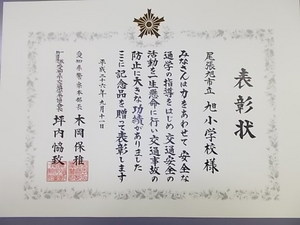 表彰状
尾張旭市立 旭小学校 様
みなさんは力をあわせて安全な
通学の指導をはじめ交通安全の
活動を一生懸命に行い交通事故の
防止に大きな功績がありました
ここに記念品を贈って表彰します
平成二十六年九月十一日
愛知県警察本部長 木岡保雅
坪内恊致